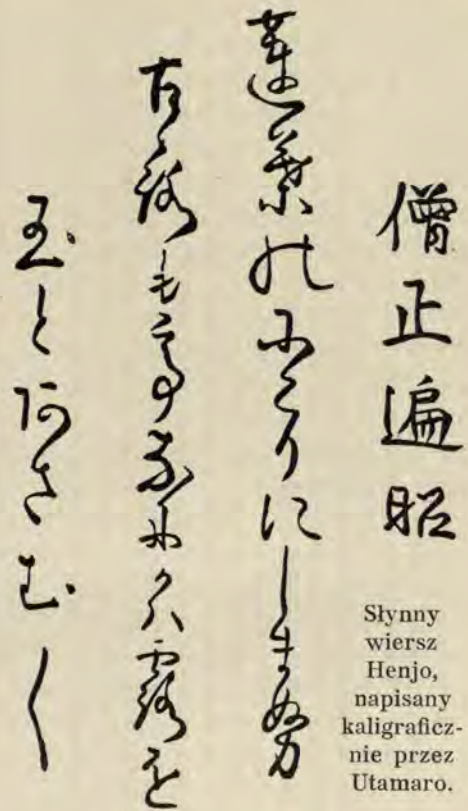 僧正遍昭
蓮葉のにこりにしまぬ
古ゝ路もてなにかハ露を
玉と阿さむく
Słynny
wiersz
Henjo,
napisany
kaligraficz-
nie przez
Utamaro.